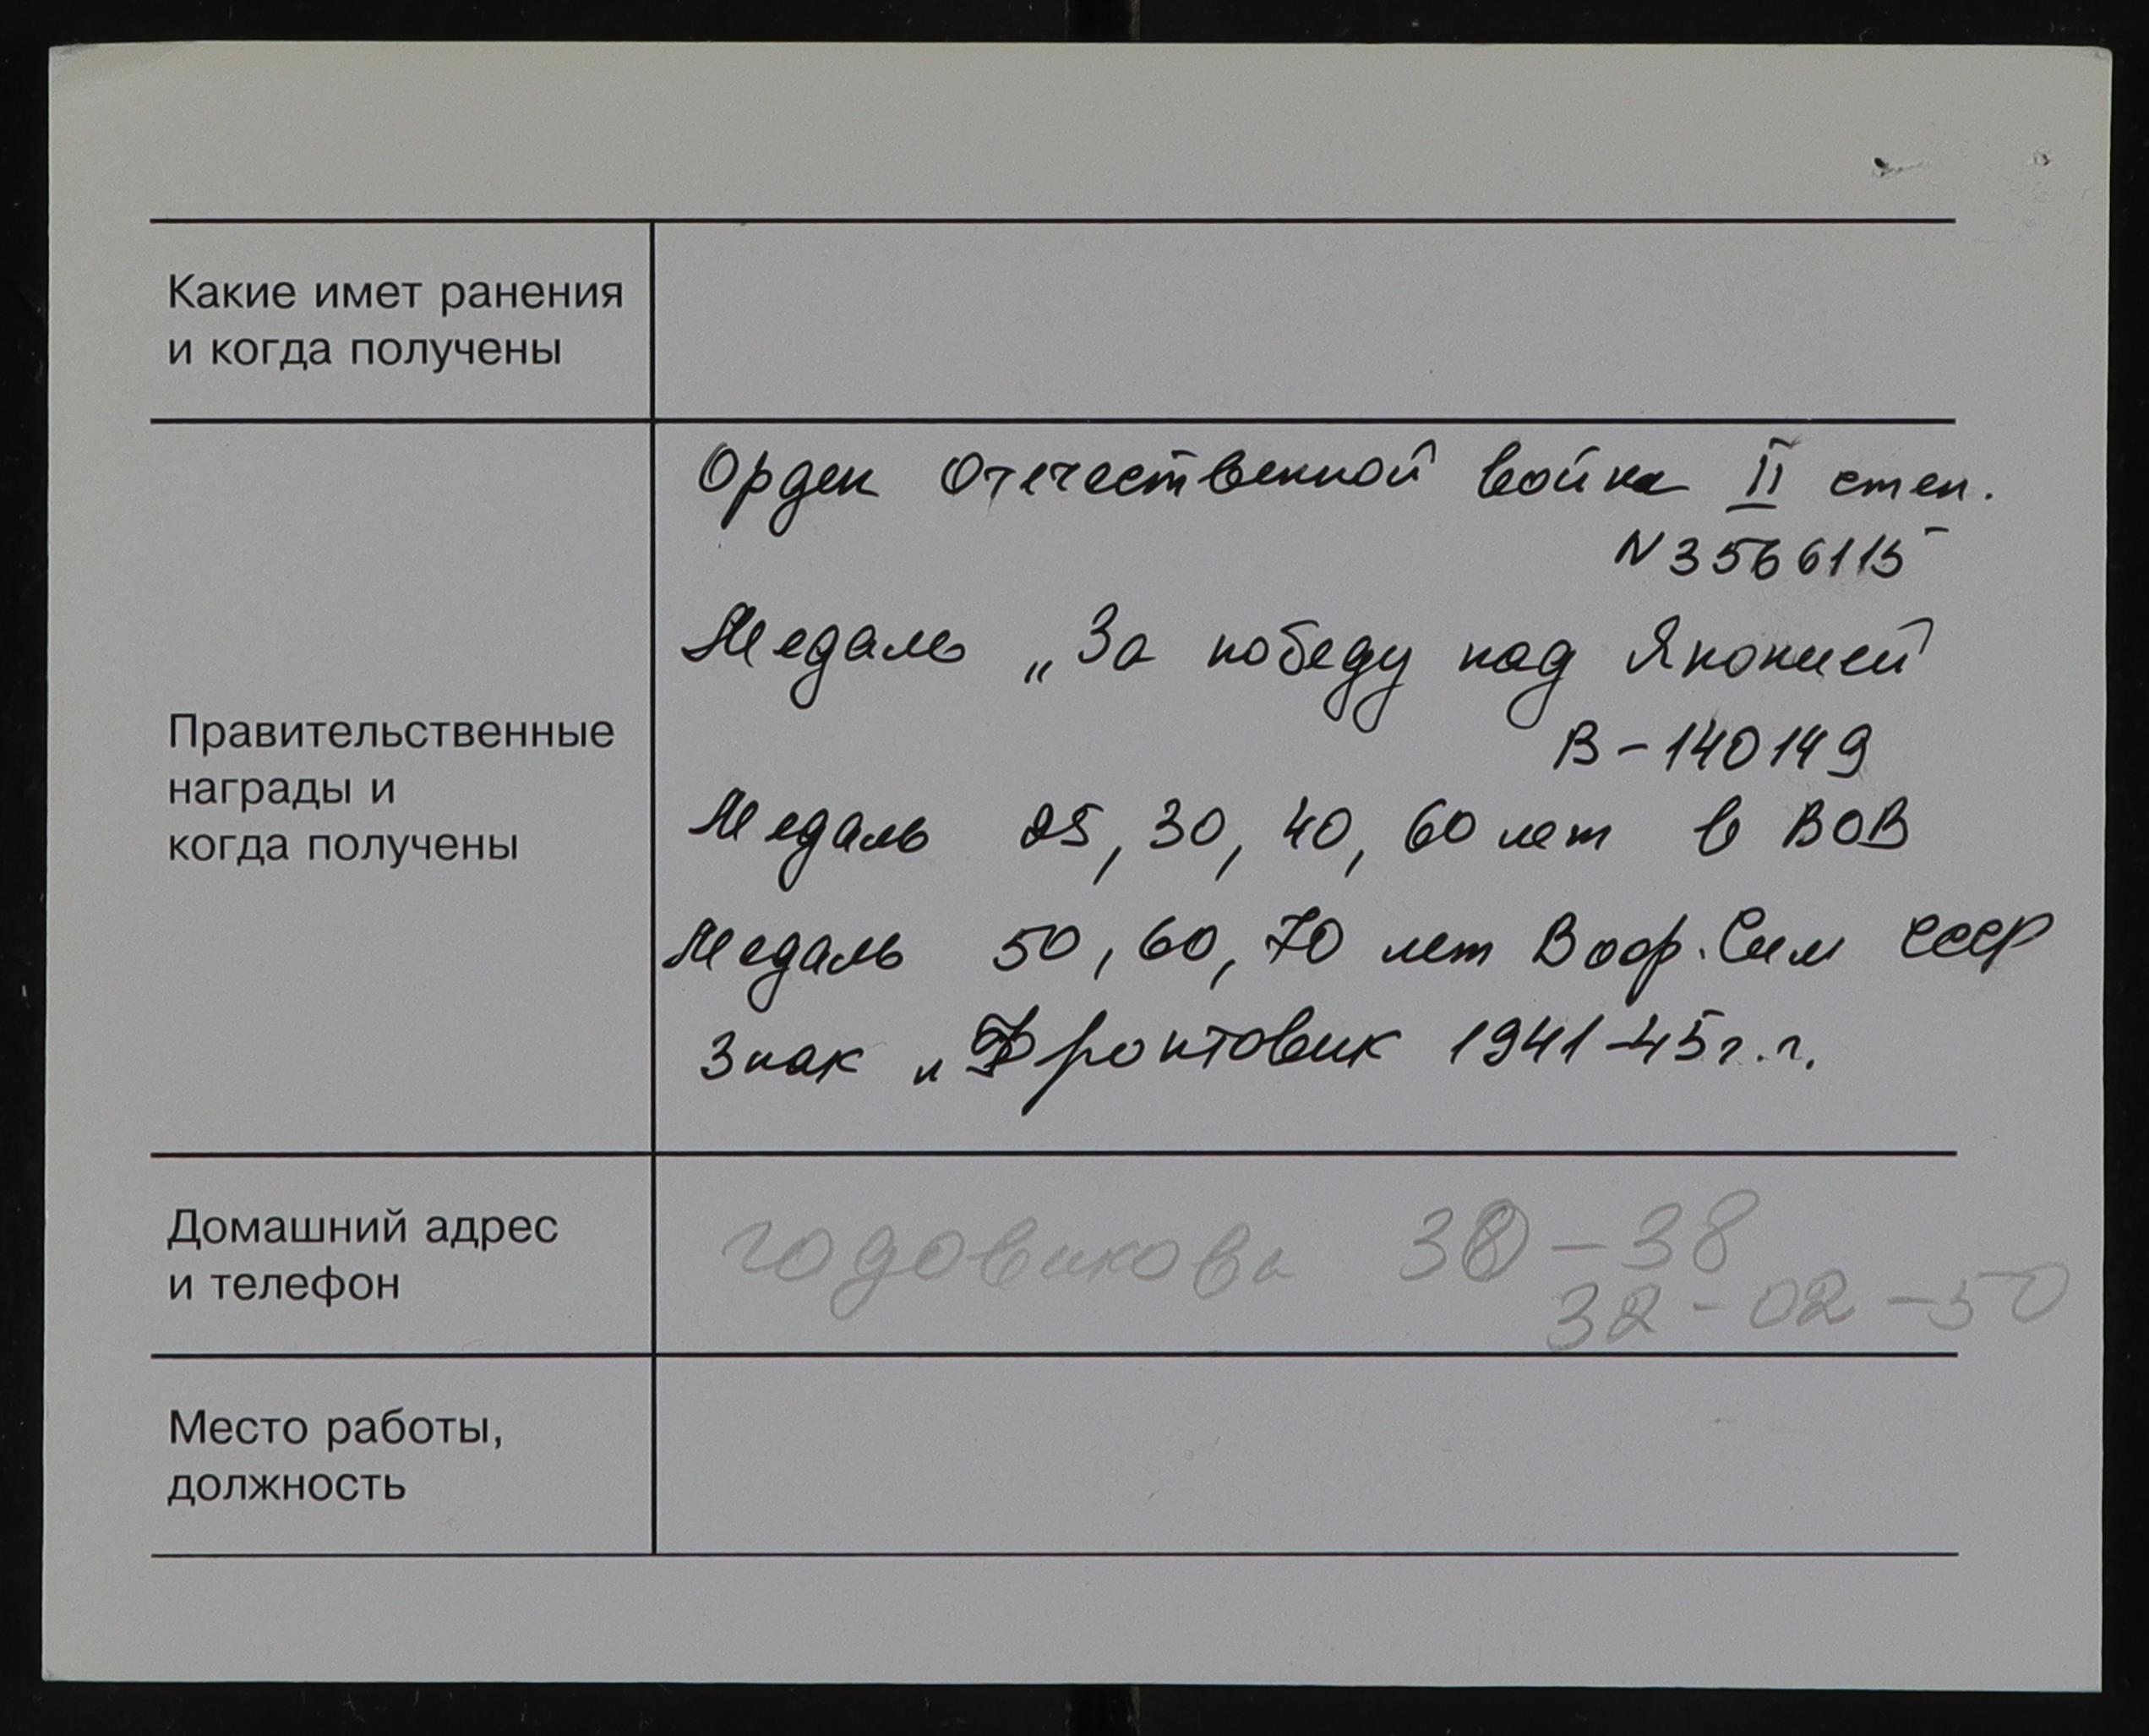 Какие имет ранения
и когда получены
Правительственные
награды и
когда получены
Орден Отечественной война II степ.
N 3566115
Медаль „За победу над Японией
В-140149
Медаль 25, 30, 40, 60 лет в ВОВ
Медаль 50, 60, 70 лет Воор. Сил СССР
Знак „Фронтовик 1941-45 г.г.
Домашний адрес
и телефон
Годовикова 38-38
32-02-50
Место работы,
должность